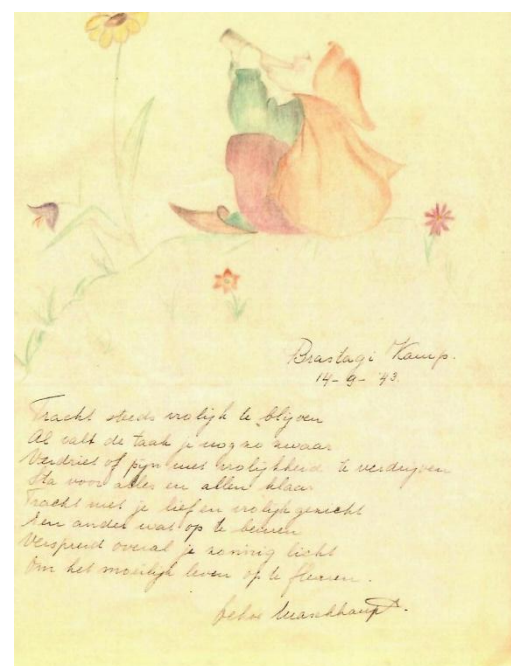 Brastagi Kamp.
14-9-'43.
Tracht steeds vrolijk te blijven
Al valt de taak je nog zo zwaar
Verdriet of pijn met vrolijkheid te verdrijven
Sta voor alles en allen klaar
Tracht met je lief en vrolijk gezicht
Een ander wat op te beuren
Verspreid overal je zonnig licht
Om het moeilijk leven op te fleuren.